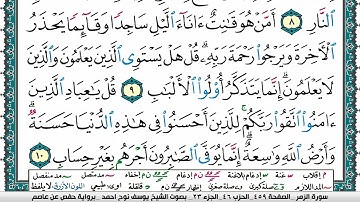 ٱلنَّارِ ٨ أَمَّنْ هُوَ قَٰنِتٌ ءَانَآءَ ٱلَّيْلِ سَاجِدًا وَقَآئِمًا يَحْذَرُ
ٱلْءَاخِرَةَ وَيَرْجُوا۟ رَحْمَةَ رَبِّهِۦ ۗ قُلْ هَلْ يَسْتَوِى ٱلَّذِينَ يَعْلَمُونَ وَٱلَّذِينَ
لَا يَعْلَمُونَ ۗ إِنَّمَا يَتَذَكَّرُ أُو۟لُوا۟ ٱلْأَلْبَٰبِ ٩ قُلْ يَٰعِبَادِ ٱلَّذِينَ
ءَامَنُوا۟ ٱتَّقُوا۟ رَبَّكُمْ ۚ لِلَّذِينَ أَحْسَنُوا۟ فِى هَٰذِهِ ٱلدُّنْيَا حَسَنَةٌ ۗ
وَأَرْضُ ٱللَّهِ وَٰسِعَةٌ ۗ إِنَّمَا يُوَفَّى ٱلصَّٰبِرُونَ أَجْرَهُم بِغَيْرِ حِسَابٍ ١٠
سورة الزمر - الصفحة ٤٥٩ - الحزب ٤٦ - الجزء ٢٣ - بصوت الشيخ يوسف نوح احمد - برواية حفص عن عاصم